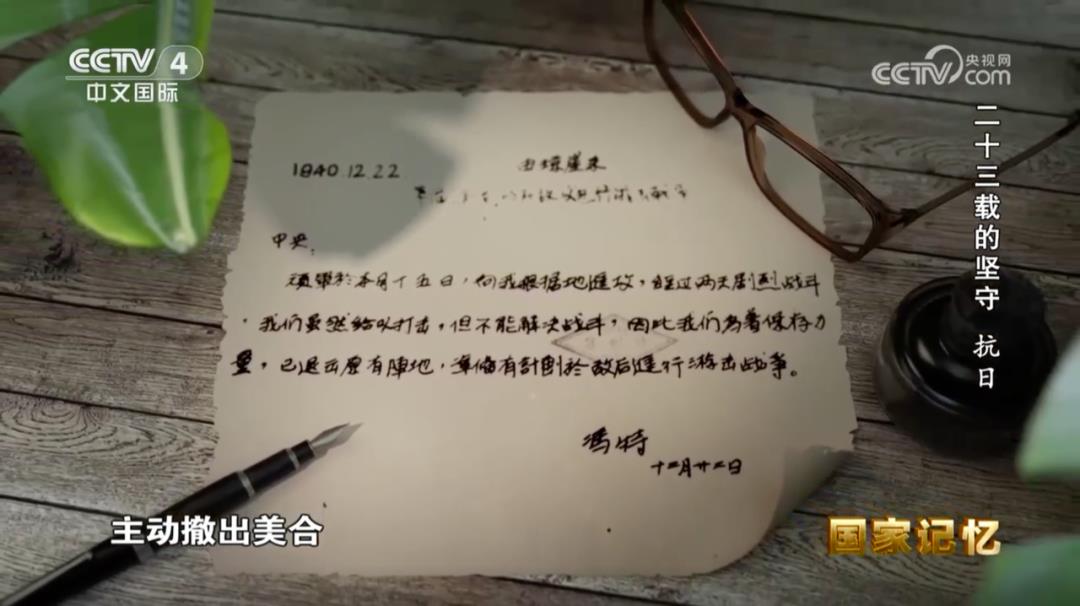 CCTV 4
中文国际
CCTV 央视网
com
二十三载的坚守 抗日
1940.12.22
中央：
顽军於本月十五日，向我根据地進攻，经过两天剧烈战斗
，我们虽然给以打击，但不能解决战斗，因此我们为着保存力
量，已退出原有陣地，準備有計劃於敌后進行游击战争。
冯特
十二月廿二日
主动撤出美合
国家记忆